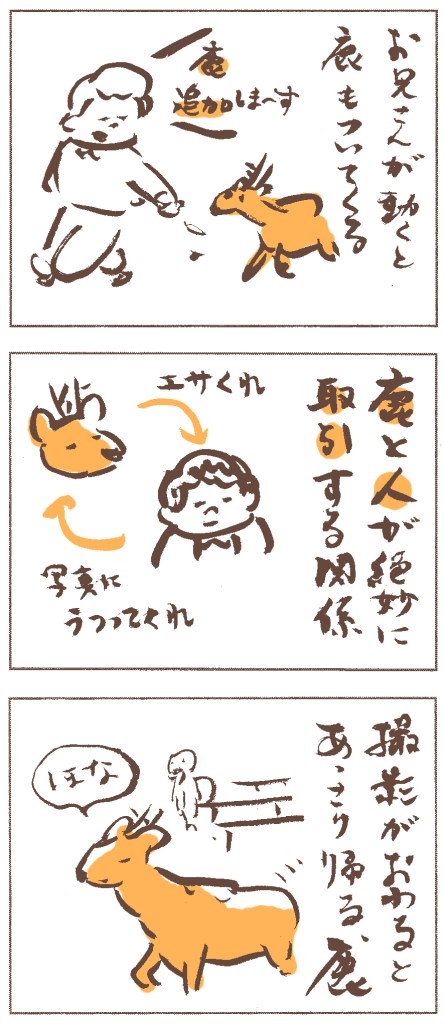 お兄さんが動くと
鹿もついてくる
鹿
追加しま〜す
鹿と人が絶妙に
取引する関係
エサくれ
写真に
うつってくれ
撮影がおわると
あっさり帰る、鹿
ほな